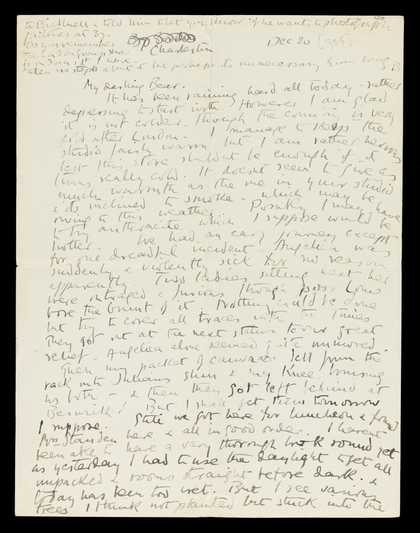 to Bicknell & told him that you know if he wants to photograph
pictures at 37.
Do you remember
Charleston
Dec 20 [1928]
My darling Bear.
It has been raining hard all today - rather
depressing to start with. However I am glad
it is not colder, though the country is very
cold after London. I manage to keep the
studio fairly warm but I am rather nervous
lest this stove shouldn't be enough if it
turns really cold. It doesn't seem to give as
much warmth as the one in your studio
& its inclined to smoke - which may be
owing to this weather. Possibly I may have
to try anthracite which I suppose would be
hotter. We had an easy journey except
for one dreadful incident. Angelica was
suddenly & violently sick for no reason
apparently. Two ladies sitting next her
were outraged & furious though poor Louie
bore the brunt of it. Nothing could be done
but try to cover all traces with the Times
They got out at the next station to our great
relief. Angelica alone seemed quite unmoved.
Then my packet of canvases fell from the
rack onto Julian's shin & my knee bruising
us both - & then they got left behind at
Berwick! But I shall get them tomorrow
I suppose. Still we got here for luncheon & found
Mrs Stansden here & all in good order. I haven't
been able to have a very thorough look round yet
as yesterday I had to use the daylight to get all
unpacked & rooms straight before dark. &
today has been too wet. But I see various
trees I think not planted but stuck into the